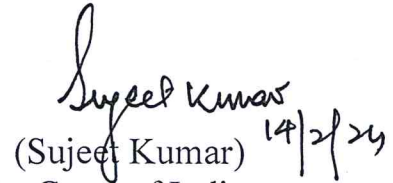 Sujeet Kumar
(Sujeet Kumar) 14/2/24